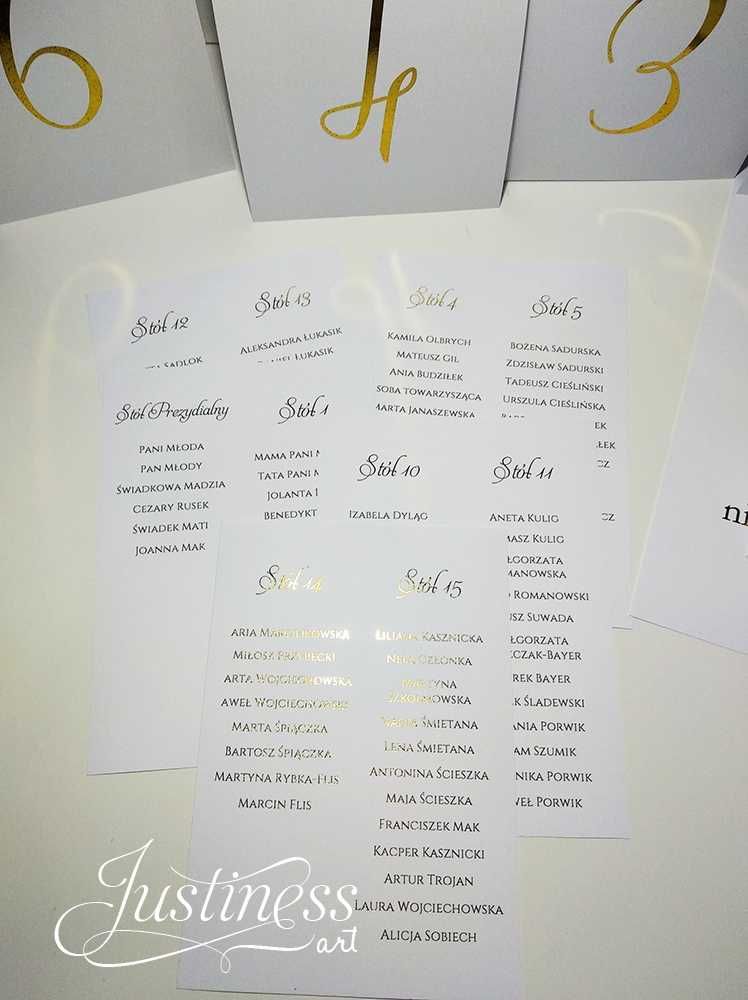 6
4
3
Stół 12
SADLOK
Stół 13
ALEKSANDRA ŁUKASIK
ŁUKASIK
Stół 4
KAMILA OLBRYCH
MATEUSZ GIL
ANIA BUDZIŁEK
SOBA TOWARZYSZĄCA
MARTA JANASZEWSKA
Stół 5
BOŻENA SADURSKA
ZDZISŁAW SADURSKI
TADEUSZ CIEŚLIŃSKI
URSZULA CIEŚLIŃSKA
Stół Prezydialny
PANI MŁODA
PAN MŁODY
ŚWIADKOWA MADZIA
CEZARY RUSEK
ŚWIADEK MATI
JOANNA MAK
Stół 1
MAMA PANI M
TATA PANI M
JOLANTA
BENEDYKT
Stół 10
IZABELA DYLĄG
Stół 11
ANETA KULIG
MASZ KULIG
ŁGORZATA
MANOWSKA
ROMANOWSKI
USZ SUWADA
ŁGORZATA
CZAK-BAYER
REK BAYER
K ŚLADEWSKI
ANIA PORWIK
AM SZUMIK
NIKA PORWIK
WEŁ PORWIK
Stół 14
ARIA
MIŁOSZ
ARTA WOJCIECHOWSKA
AWEŁ WOJCIECHOWSKI
MARTA ŚPIĄCZKA
BARTOSZ ŚPIĄCZKA
MARTYNA RYBKA-FLIS
MARCIN FLIS
Stół 15
LILIANA KASZNICKA
NELA CZŁONKA
MARTYNA
ŚMIETANA
LENA ŚMIETANA
ANTONINA ŚCIESZKA
MAJA ŚCIESZKA
FRANCISZEK MAK
KACPER KASZNICKI
ARTUR TROJAN
LAURA WOJCIECHOWSKA
ALICJA SOBIECH
Justiness
art